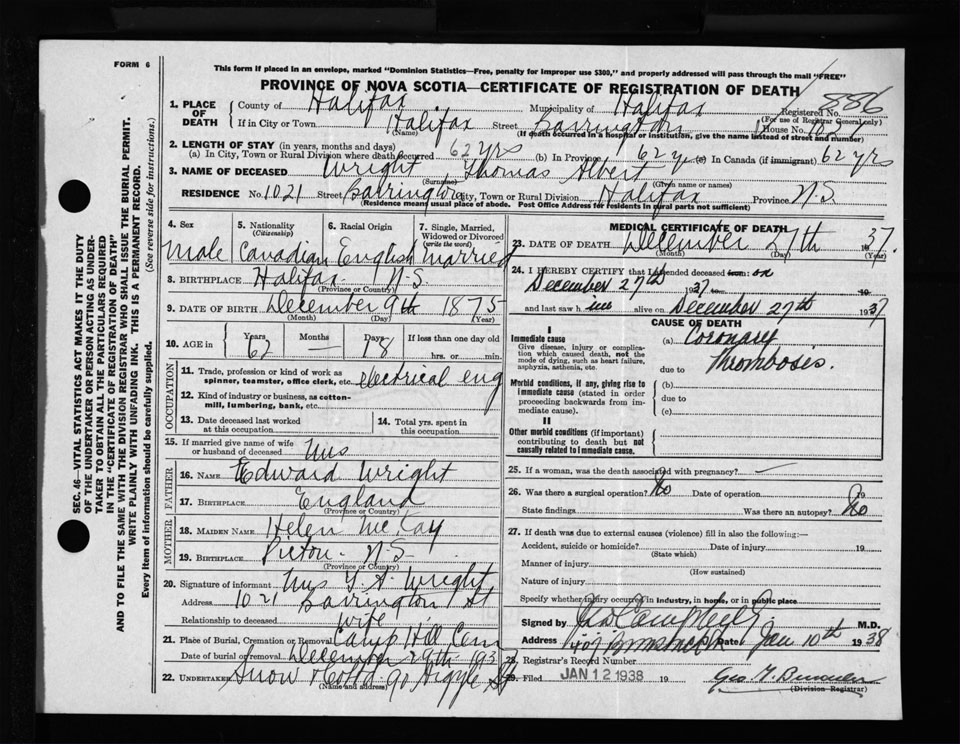 FORM 6
This form if placed in an envelope, marked "Dominion Statistics—Free, penalty for improper use $300," and properly addressed will pass through the mail "FREE"
PROVINCE OF NOVA SCOTIA—CERTIFICATE OF REGISTRATION OF DEATH
1. PLACE OF DEATH
County of Halifax Municipality of Halifax Registered No. 886
(For use of Registrar General only)
If in City or Town Halifax Street Barrington House No. 1021
(Name) (If death occurred in a hospital or institution, give the name instead of street and number)
2. LENGTH OF STAY (in years, months and days)
(a) In City, Town or Rural Division where death occurred 62 yrs (b) In Province 62 y (c) In Canada (if immigrant) 62 yrs
3. NAME OF DECEASED Wright Thomas Albert
(Surname) (Given name or names)
RESIDENCE No. 1021 Street Barrington City, Town or Rural Division Halifax Province N.S.
(Residence means usual place of abode. Post Office Address for residents in rural parts not sufficient)
4. Sex 5. Nationality (Citizenship) 6. Racial Origin 7. Single, Married, Widowed or Divorced (write the word)
Male Canadian English Married
8. BIRTHPLACE Halifax N-S.
(Province or Country)
9. DATE OF BIRTH December 9th 1875
(Month) (Day) (Year)
10. AGE in Years Months Days If less than one day old
62 — 18 hrs. or min.
OCCUPATION
11. Trade, profession or kind of work as spinner, teamster, office clerk, etc. electrical eng
12. Kind of industry or business, as cotton-mill, lumbering, bank, etc.
13. Date deceased last worked at this occupation 14. Total yrs. spent in this occupation
15. If married give name of wife or husband of deceased
FATHER
16. NAME Edward Wright
17. BIRTHPLACE England
(Province or Country)
MOTHER
18. MAIDEN NAME Helen McKay
19. BIRTHPLACE Pictou - N-S.
(Province or Country)
20. Signature of informant Mrs T. A. Wright
Address 1021 Barrington St
Relationship to deceased wife
21. Place of Burial, Cremation or Removal Camp Hill Cem
Date of burial or removal December 29th 193
22. Undertaker Snow &amp; Co Ltd 90 Argyle St
(Name and address)
MEDICAL CERTIFICATE OF DEATH
23. DATE OF DEATH December 27th 1937.
(Month) (Day)
24. I HEREBY CERTIFY that I attended deceased from: on
December 27th 1937 to 19
and last saw h im alive on December 27th 1937
CAUSE OF DEATH
I
Immediate cause (a) Coronary
Give disease, injury or complication which caused death, not the mode of dying, such as heart failure, asphyxia, asthenia, etc.
due to Thrombosis.
Morbid conditions, if any, giving rise to immediate cause (stated in order proceeding backwards from immediate cause).
(b)
due to
(c)
II
Other morbid conditions (if important) contributing to death but not causally related to immediate cause.
25. If a woman, was the death associated with pregnancy? —
26. Was there a surgical operation? No Date of operation 19
State findings Was there an autopsy? No
27. If death was due to external causes (violence) fill in also the following:—
Accident, suicide or homicide? Date of injury 19
(State which)
Manner of injury
(How sustained)
Nature of injury
Specify whether injury occurred in industry, in home, or in public place
Signed by Campbell M.D.
Address 407 Date Jan 10th 1938
28. Registrar's Record Number
29. Filed JAN 12 1938 19
(Division Registrar)
SEC. 46—VITAL STATISTICS ACT MAKES IT THE DUTY
OF THE UNDERTAKER OR PERSON ACTING AS UNDERTAKER
TO OBTAIN ALL THE PARTICULARS REQUIRED
IN THE "CERTIFICATE OF REGISTRATION OF DEATH"
AND TO FILE THE SAME WITH THE DIVISION REGISTRAR WHO SHALL ISSUE THE BURIAL PERMIT.
WRITE PLAINLY WITH UNFADING INK. THIS IS A PERMANENT RECORD.
Every item of information should be carefully supplied. (See reverse side for instructions.)